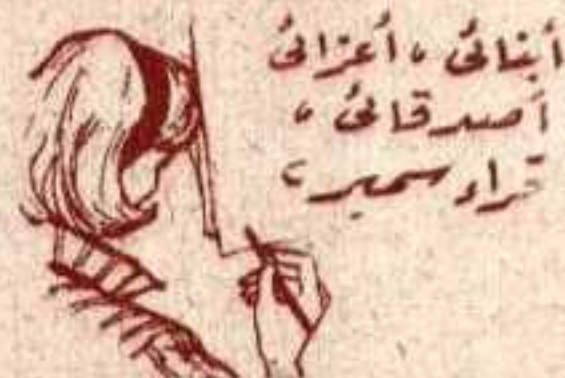 أبنائى، أعزائى
أصدقائى،
قراء سمير،